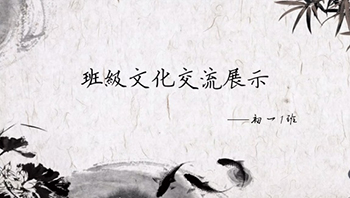 班級文化交流展示
——初一1班